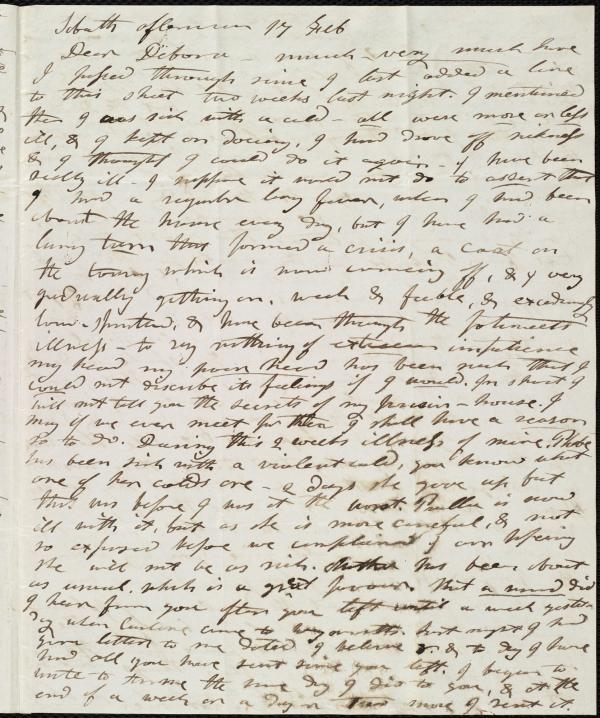 Sabath afternoon 17 Feb
Dear Debora - much very much have
I passed through since I last added a line
to this sheet two weeks last night. I mentioned
then I was sick with a cold - all were more or less
ill, & I kept on dosing, I had drove off sickness
& I thought I could do it again - I have been
really ill - I suppose it would not do to assert that
I had a regular lung fever, when I had been
about the house every day, but I have had a
lung turn that formed a crisis, a coat on
the tongue which is now coming off, & I very
gradually getting on, weak & feeble, & exceedingly
low-spirited, & have been through the
illness - to say nothing of extreme impatience
my head my poor head has been such that I
could not describe its feelings if I would. In short I
will not tell you the secrets of my prison-house. I
may if we ever meet for then I shall have a reason
so to do. During this 2 weeks illness of mine, Phebe
has been sick with a violent cold, you know what
one of her colds are - 2 days she gave up but
this was before I was at the worst. is now
ill with it, but as she is more careful, & not
so exposed before we complained I am hoping
she will not be as sick. has been about
as usual, which is a great favour. Not a word did
I hear from you after you left until a week yester
day when Caroline came to Weymouth. Last night I had
your letter to me dated I believe & to day I have
had all you have sent since you left. I began to
write to the same day I did to you, & at the
end of a week or a day or two more I sent it.